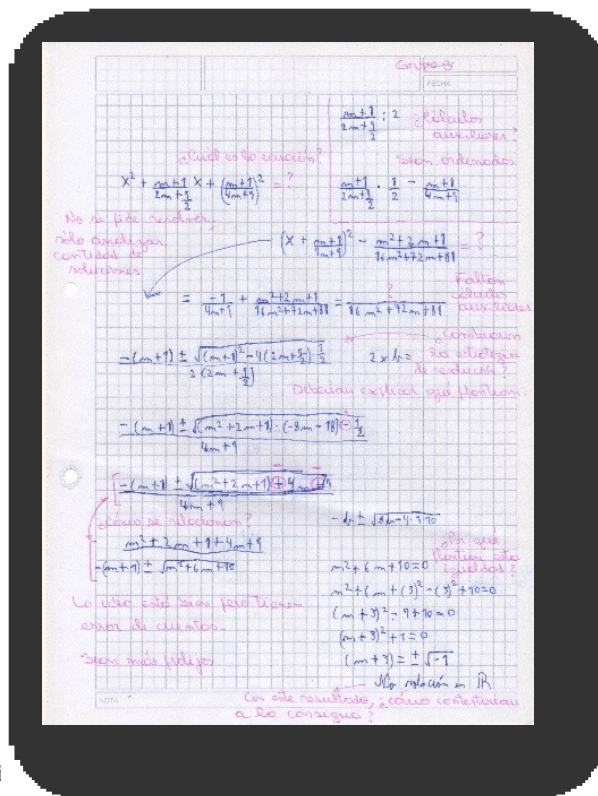 Grupo
FECHA
(m+1)/(2m+9/2) : 2 ¿Cálculos
auxiliares?
¿Cuál es la ecuación? Sean ordenados
x² + (m+1)/(2m+9/2) x + ((m+1)/(4m+9))² = ?
(m+1)/(2m+9/2) · 1/2 = (m+1)/(4m+9)
No se pide resolver,
sólo analizar
cantidad de
soluciones
(x + (m+1)/(4m+9))² - (m²+2m+1)/(16m²+72m+81) = ?
Faltan
cálculos
auxiliares
= -1/(4m+9) + (m²+2m+1)/(16m²+72m+81) = ?/(16m²+72m+81)
¿Cambiaron
la estrategia
de resolución?
(-(m+1) ± √((m+1)²-4(2m+9/2)·1/2))/(2(2m+9/2))
Deberían explicar qué plantean.
(-(m+1) ± √((m²+2m+1)·(-8m-18)(-)1/2))/(4m+9)
(-(m+1) ± √((m²+2m+1)+4m+9))/(4m+9)
¿Cómo se relacionan?
m²+2m+1+4m+9
-(m+1) ± √m²+6m+10
¿Por qué
plantean esta
igualdad?
m²+6m+10=0
m²+6m+(3)²-(3)²+10=0
(m+3)²-9+10=0
(m+3)²+1=0
(m+3)=±√-1
No solución en ℝ
La idea está bien pero tienen
error de cuentas.
Sean más prolijos
NOTA
Con este resultado, ¿cómo contestarían
a la consigna?